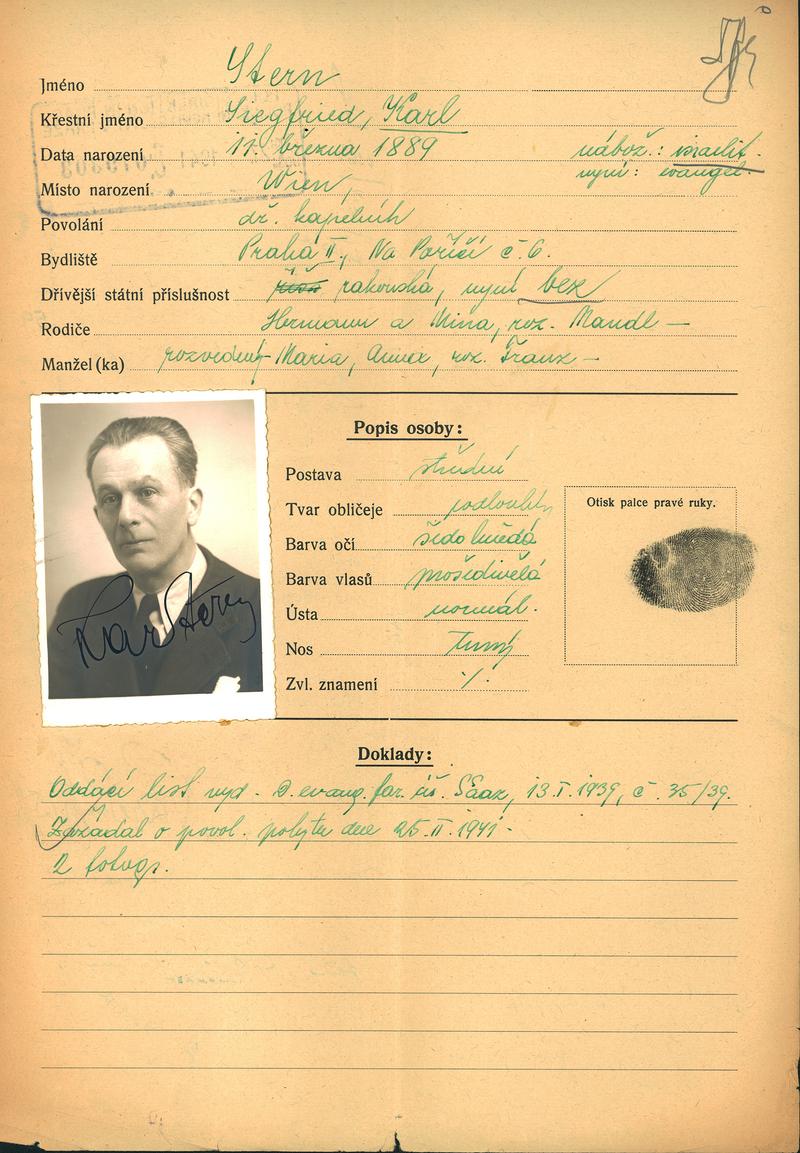 Jméno Stern
Křestní jméno Siegfried, Karl
Data narození 11. března 1889 nábož.: israelit.
nyní: evangel.
Místo narození Wien,
Povolání dř. kapelník
Bydliště Praha II., Na Poříčí č. 6.
Dřívější státní příslušnost říšs rakouská, nyní bez
Rodiče Hermann a Mina, roz. Mandl —
Manžel (ka) rozvedený Maria, Anna, roz. Franz —
Popis osoby:
Postava střední
Tvar obličeje podlouhlý
Otisk palce pravé ruky.
Barva očí šedohnědá
Barva vlasů prošedivělá
Ústa normál.
Nos
Zvl. znamení ./.
Karl Stern
Doklady:
Oddací list vyd. D. evang. far. úř. Saaz, 13.I.1939, č. 35/39.
Zažádal o povol. pobytu dne 25.II.1941.
2 fotogr.